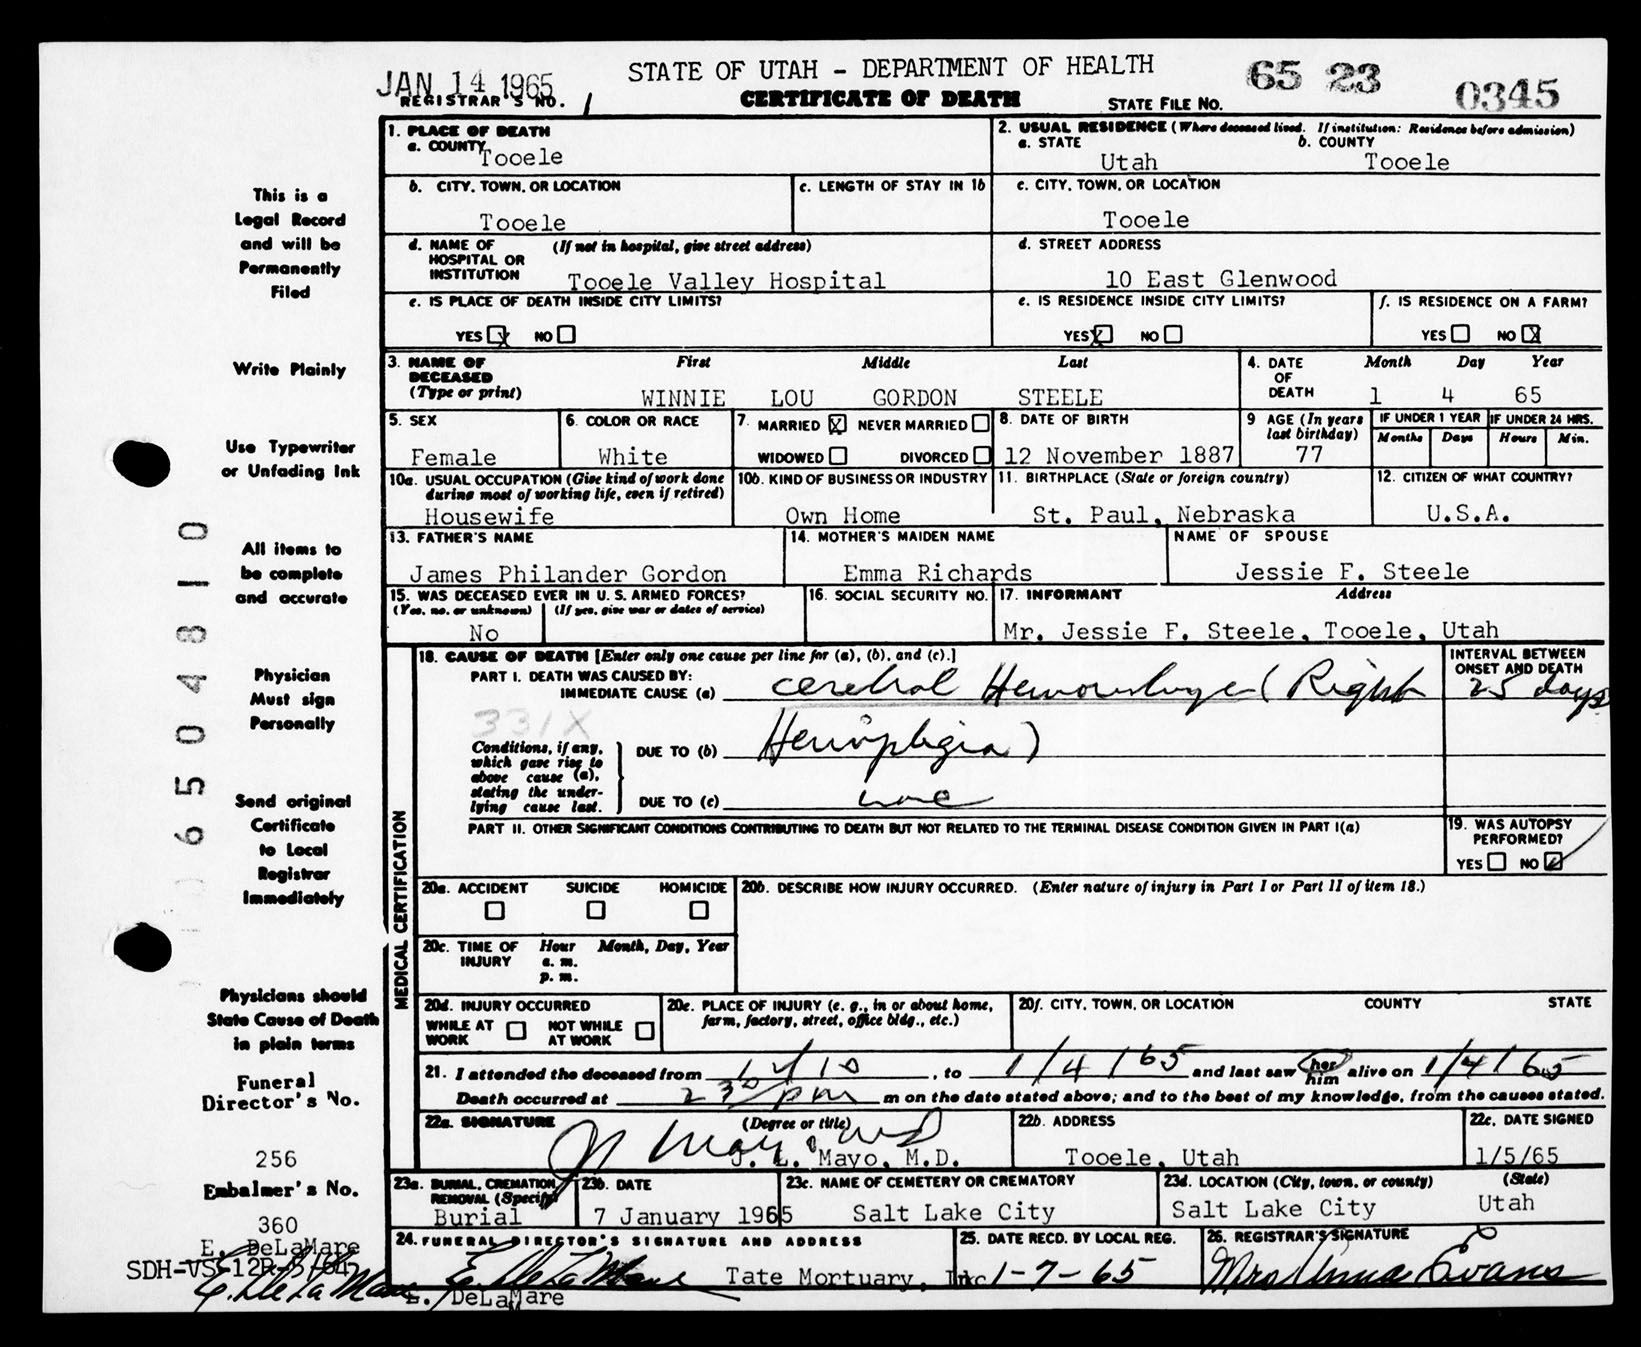 JAN 14 1965
STATE OF UTAH - DEPARTMENT OF HEALTH
65 23
0345
REGISTRAR'S NO. 1
CERTIFICATE OF DEATH
STATE FILE NO.
This is a
Legal Record
and will be
Permanently
Filed
Write Plainly
Use Typewriter
or Unfading Ink
All items to
be complete
and accurate
Physician
Must sign
Personally
Send original
Certificate
to Local
Registrar
Immediately
Physicians should
State Cause of Death
in plain terms
Funeral
Director's No.
256
Embalmer's No.
360
E. DeLaMare
SDH-VS-12R-3/64
E. DeLaMare
65 04810
1. PLACE OF DEATH
a. COUNTY
Tooele
2. USUAL RESIDENCE (Where deceased lived. If institution: Residence before admission)
a. STATE b. COUNTY
Utah Tooele
b. CITY, TOWN, OR LOCATION
Tooele
c. LENGTH OF STAY IN 1b
c. CITY, TOWN, OR LOCATION
Tooele
d. NAME OF (If not in hospital, give street address)
HOSPITAL OR
INSTITUTION Tooele Valley Hospital
d. STREET ADDRESS
10 East Glenwood
e. IS PLACE OF DEATH INSIDE CITY LIMITS?
YES X NO
e. IS RESIDENCE INSIDE CITY LIMITS?
YES X NO
f. IS RESIDENCE ON A FARM?
YES NO X
3. NAME OF First Middle Last
DECEASED
(Type or print) WINNIE LOU GORDON STEELE
4. DATE Month Day Year
OF
DEATH 1 4 65
5. SEX
Female
6. COLOR OR RACE
White
7. MARRIED X NEVER MARRIED
WIDOWED DIVORCED
8. DATE OF BIRTH
12 November 1887
9 AGE (In years
last birthday)
77
IF UNDER 1 YEAR IF UNDER 24 HRS.
Months Days Hours Min.
10a. USUAL OCCUPATION (Give kind of work done
during most of working life, even if retired)
Housewife
10b. KIND OF BUSINESS OR INDUSTRY
Own Home
11. BIRTHPLACE (State or foreign country)
St. Paul, Nebraska
12. CITIZEN OF WHAT COUNTRY?
U.S.A.
13. FATHER'S NAME
James Philander Gordon
14. MOTHER'S MAIDEN NAME
Emma Richards
NAME OF SPOUSE
Jessie F. Steele
15. WAS DECEASED EVER IN U.S. ARMED FORCES?
(Yes, no, or unknown) (If yes, give war or dates of service)
No
16. SOCIAL SECURITY NO.
17. INFORMANT Address
Mr. Jessie F. Steele, Tooele, Utah
MEDICAL CERTIFICATION
18. CAUSE OF DEATH [Enter only one cause per line for (a), (b), and (c).]
PART I. DEATH WAS CAUSED BY:
IMMEDIATE CAUSE (a) Cerebral Hemorrhage (Right
331X
Conditions, if any,
which gave rise to
above cause (a),
stating the under-
lying cause last.
DUE TO (b) Hemiplegia)
DUE TO (c) none
INTERVAL BETWEEN
ONSET AND DEATH
25 days
PART II. OTHER SIGNIFICANT CONDITIONS CONTRIBUTING TO DEATH BUT NOT RELATED TO THE TERMINAL DISEASE CONDITION GIVEN IN PART I(a)
19. WAS AUTOPSY
PERFORMED?
YES NO ✓
20a. ACCIDENT SUICIDE HOMICIDE
20b. DESCRIBE HOW INJURY OCCURRED. (Enter nature of injury in Part I or Part II of item 18.)
20c. TIME OF Hour Month, Day, Year
INJURY a. m.
p. m.
20d. INJURY OCCURRED
WHILE AT WORK NOT WHILE AT WORK
20e. PLACE OF INJURY (e. g., in or about home,
farm, factory, street, office bldg., etc.)
20f. CITY, TOWN, OR LOCATION COUNTY STATE
21. I attended the deceased from 12/10, to 1/4/65 and last saw her him alive on 1/4/65
Death occurred at 2 30/pm m on the date stated above; and to the best of my knowledge, from the causes stated.
22a. SIGNATURE (Degree or title)
J. L. Mayo, M.D.
22b. ADDRESS
Tooele, Utah
22c. DATE SIGNED
1/5/65
23a. BURIAL, CREMATION,
REMOVAL (Specify)
Burial
23b. DATE
7 January 1965
23c. NAME OF CEMETERY OR CREMATORY
Salt Lake City
23d. LOCATION (City, town, or county) (State)
Salt Lake City Utah
24. FUNERAL DIRECTOR'S SIGNATURE AND ADDRESS
E. DeLaMare Tate Mortuary, Inc
E. DeLaMare
25. DATE RECD. BY LOCAL REG.
1-7-65
26. REGISTRAR'S SIGNATURE
Mrs Anna Evans